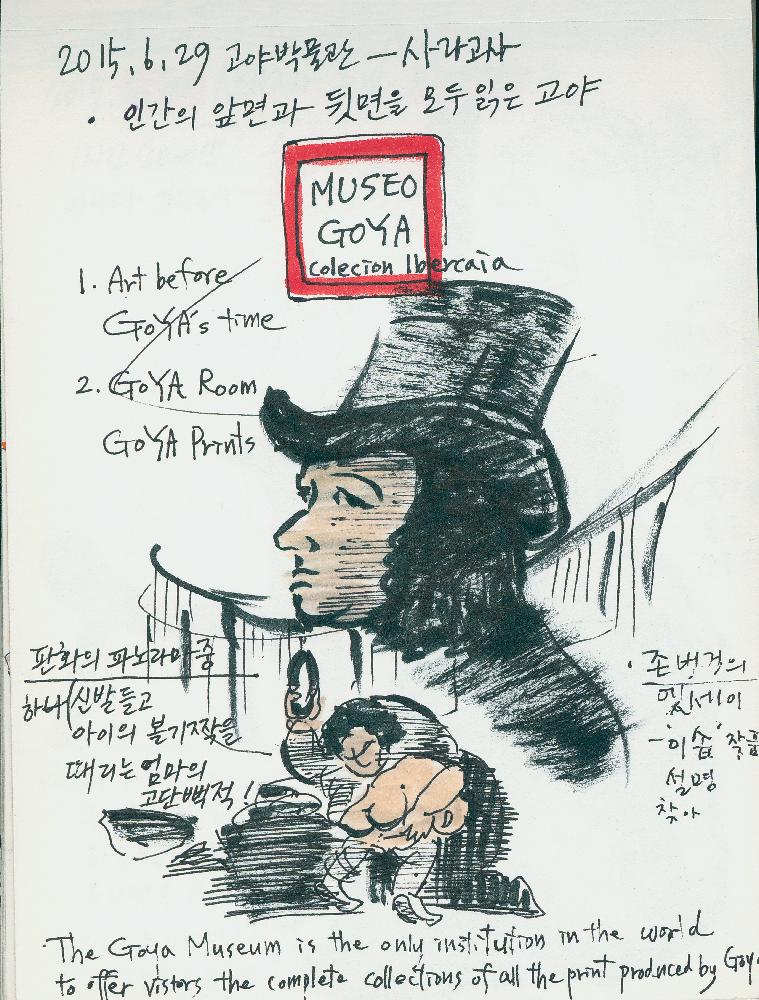 2015.6.29 고야박물관 — 사라고사
• 인간의 앞면과 뒷면을 모두 읽은 고야
MUSEO
GOYA
colecion Ibercaia
1. Art before
GOYA's time
2. GOYA Room
GOYA Prints
판화의 파노라마 중
하나 (신발들고
아이의 볼기짝을
때리는 엄마의
!
• 존 버거의
엣세이
– '이솝' 작품
설명
찾아
The Goya Museum is the only institution in the world
to offer vistors the complete collections of all the print produced by Goy